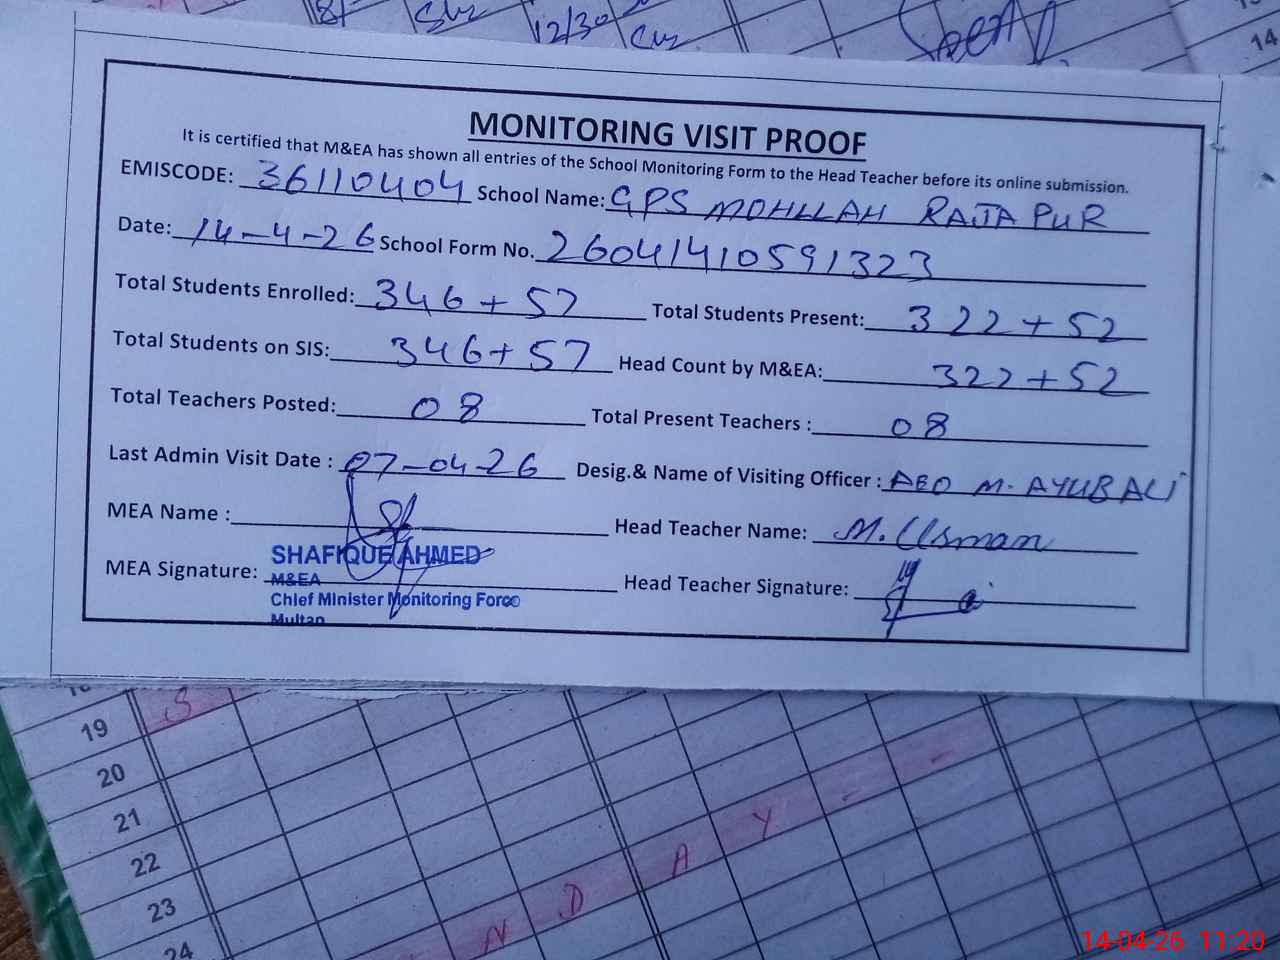 81
12/30
14
MONITORING VISIT PROOF
It is certified that M&EA has shown all entries of the School Monitoring Form to the Head Teacher before its online submission.
EMISCODE: 36110404 School Name: GPS MOHLLAH RAJA PUR
Date: 14-4-26 School Form No. 26041410591323
Total Students Enrolled: 346+57 Total Students Present: 322+52
Total Students on SIS: 346+57 Head Count by M&EA: 322+52
Total Teachers Posted: 08 Total Present Teachers : 08
Last Admin Visit Date : 07-04-26 Desig.& Name of Visiting Officer : AEO M. AYUB ALI
MEA Name : Head Teacher Name: M. Usman
SHAFIQUE AHMED
MEA Signature: M&EA Head Teacher Signature:
Chief Minister Monitoring Force
Multan
19 S
20
21
22
23
24
N D A Y
14-04-26 11:20